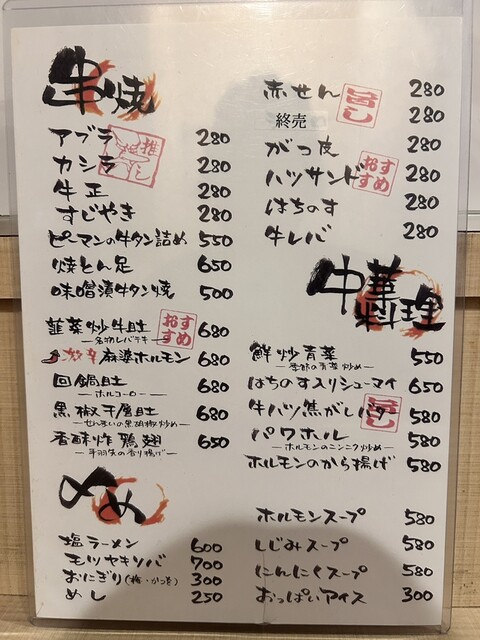 串焼
アブラ 280
カシラ 280
推し
牛正 280
すじやき 280
ピーマンの牛タン詰め 550
焼とん足 650
味噌漬牛タン焼 500
韮菜炒牛肚 680
おすすめ
―名物レバテキ―
激辛麻婆ホルモン 680
回鍋肚 680
―ホルコーロー―
黒椒千層肚 680
―せんまいの黒胡椒炒め―
香酥炸鶏翅 650
―手羽先の香り揚げ―
〆め
塩ラーメン 600
モツヤキソバ 700
おにぎり(梅・かつお) 300
めし 250
赤せん 280
旨し
終売 280
がつ皮 280
ハツサンド 280
おすすめ
はちのす 280
牛レバ 280
中華料理
鮮炒青菜 550
―季節の青菜炒め―
はちのす入りシューマイ 650
牛ハツ焦がしバター 580
旨し
パワホル 580
―ホルモンのニンニク炒め―
ホルモンのから揚げ 580
ホルモンスープ 580
しじみスープ 580
にんにくスープ 580
おっぱいアイス 300